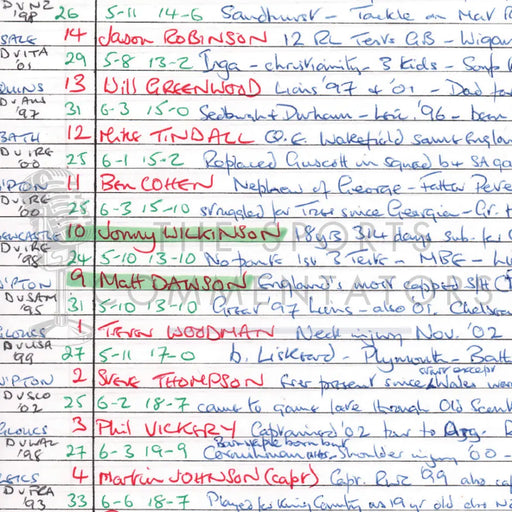 DVNZ '98 26 5-11 14-6 Sandhurst - Tackle on Mat
SALE 14 Jason ROBINSON 12 RL Tests GB - Wigan
DVITA '01 29 5-8 13-2 Inga - christianity - 3 kids -
QUINS 13 Will GREENWOOD Lions '97 & '01 - Dad
DVAUS '97 31 6-3 15-0 Sedbergh & Durham - Leic. '96 - been
BATH 12 Mike TINDALL Q.E. Wakefield same England
DVIRE '00 25 6-1 15-2 Replaced Guscott in squad b4 SA game
N'PTON 11 Ben COHEN Nephew of George - Father Peter
DVIRE '00 25 6-3 15-10 struggled for Tries since Georgia -
NEWCASTLE 10 Jonny WILKINSON 18y 314 days sub. for
DVIRE '98 24 5-10 13-10 No points 1st 3 Tests - MBE -
N'PTON 9 Matt DAWSON England's most capped S/H
DVSAM '95 31 5-10 13-10 Great '97 Lions - also 01. Chelsea
GLOUCS 1 Trevor WOODMAN Neck injury Nov. '02
DVUSA '99 27 5-11 17-0 b. Liskeard - Plymouth - Bath
N'PTON 2 Steve THOMPSON Ever present since Wales were
DVSCO '02 25 6-2 18-7 came to game late through Old Scouts
GLOUCS 3 Phil VICKERY Captained '02 tour to Arg.
Barnstaple born but
DVWAL '98 27 6-3 19-9 Cornishman - shoulder injury '00 -
LEICS 4 Martin JOHNSON (capt) Capt. RWC 99 also
DVFRA '93 33 6-6 18-7 Played for King Country as 19 yr old
THE SPORTS
COMMENTATORS